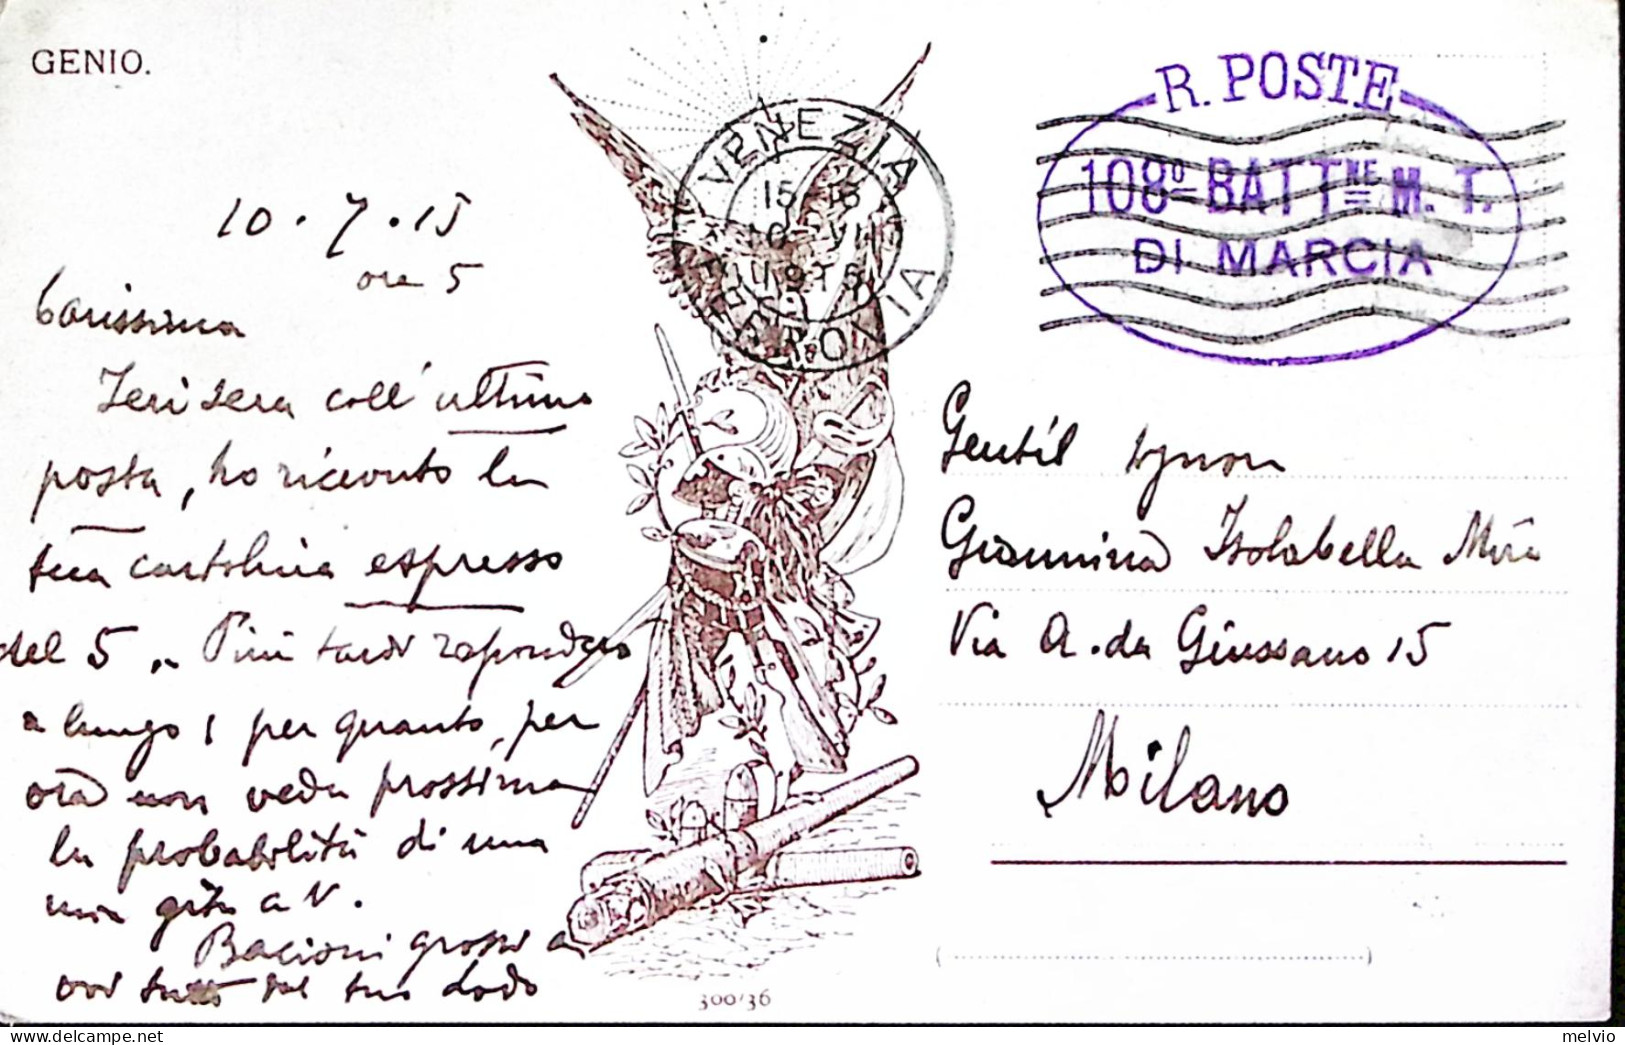 GENIO.
10.7.15
ore 5
Carissima
Ieri sera coll'ultima
posta, ho ricevuto la
tua cartolina espresso
del 5. Più tardi risponderò
a lungo, per quanto, per
ora non veda prossima
la probabilità di una
mia gita a V.
Bacioni grossi a
voi tutti dal tuo Dodo
VENEZIA
FERROVIA
R. POSTE
108º BATTNE M. T.
DI MARCIA
Gentil Signora
Giannina Isolabella
Via A. da Giussano 15
Milano
300/36
melvio